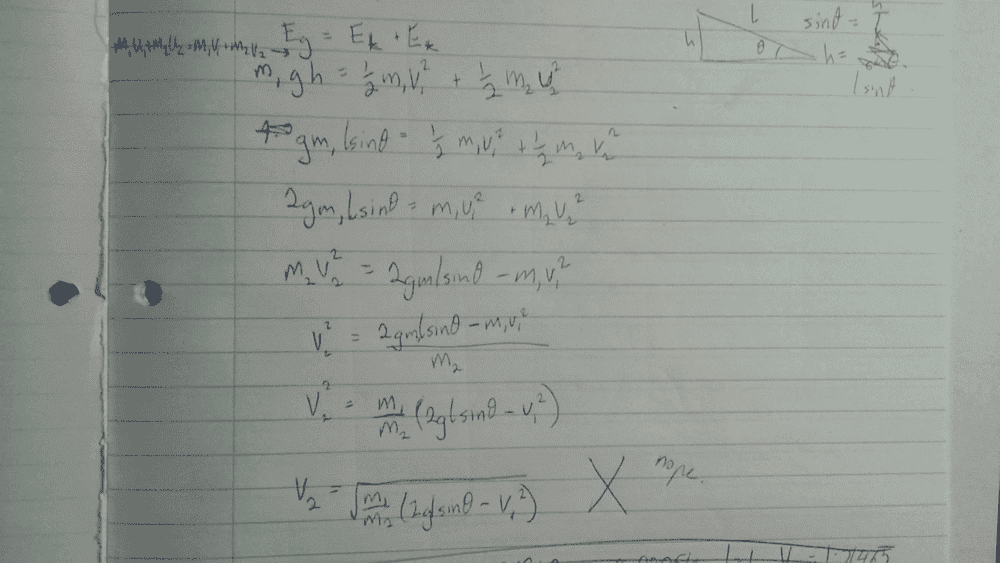 l sinθ =
h θ h =
l sinθ
E_g = E_k + E_k
m₁gh = ½m₁v₁² + ½m₂v₂²
gm₁lsinθ = ½m₁v₁² + ½m₂v₂²
2gm₁lsinθ = m₁v₁² + m₂v₂²
m₂v₂² = 2gm₁lsinθ − m₁v₁²
v₂² = (2gm₁lsinθ − m₁v₁²)/m₂
v₂² = m₁/m₂ (2glsinθ − v₁²)
v₂ = √(m₁/m₂ (2glsinθ − v₁²)) X nope.